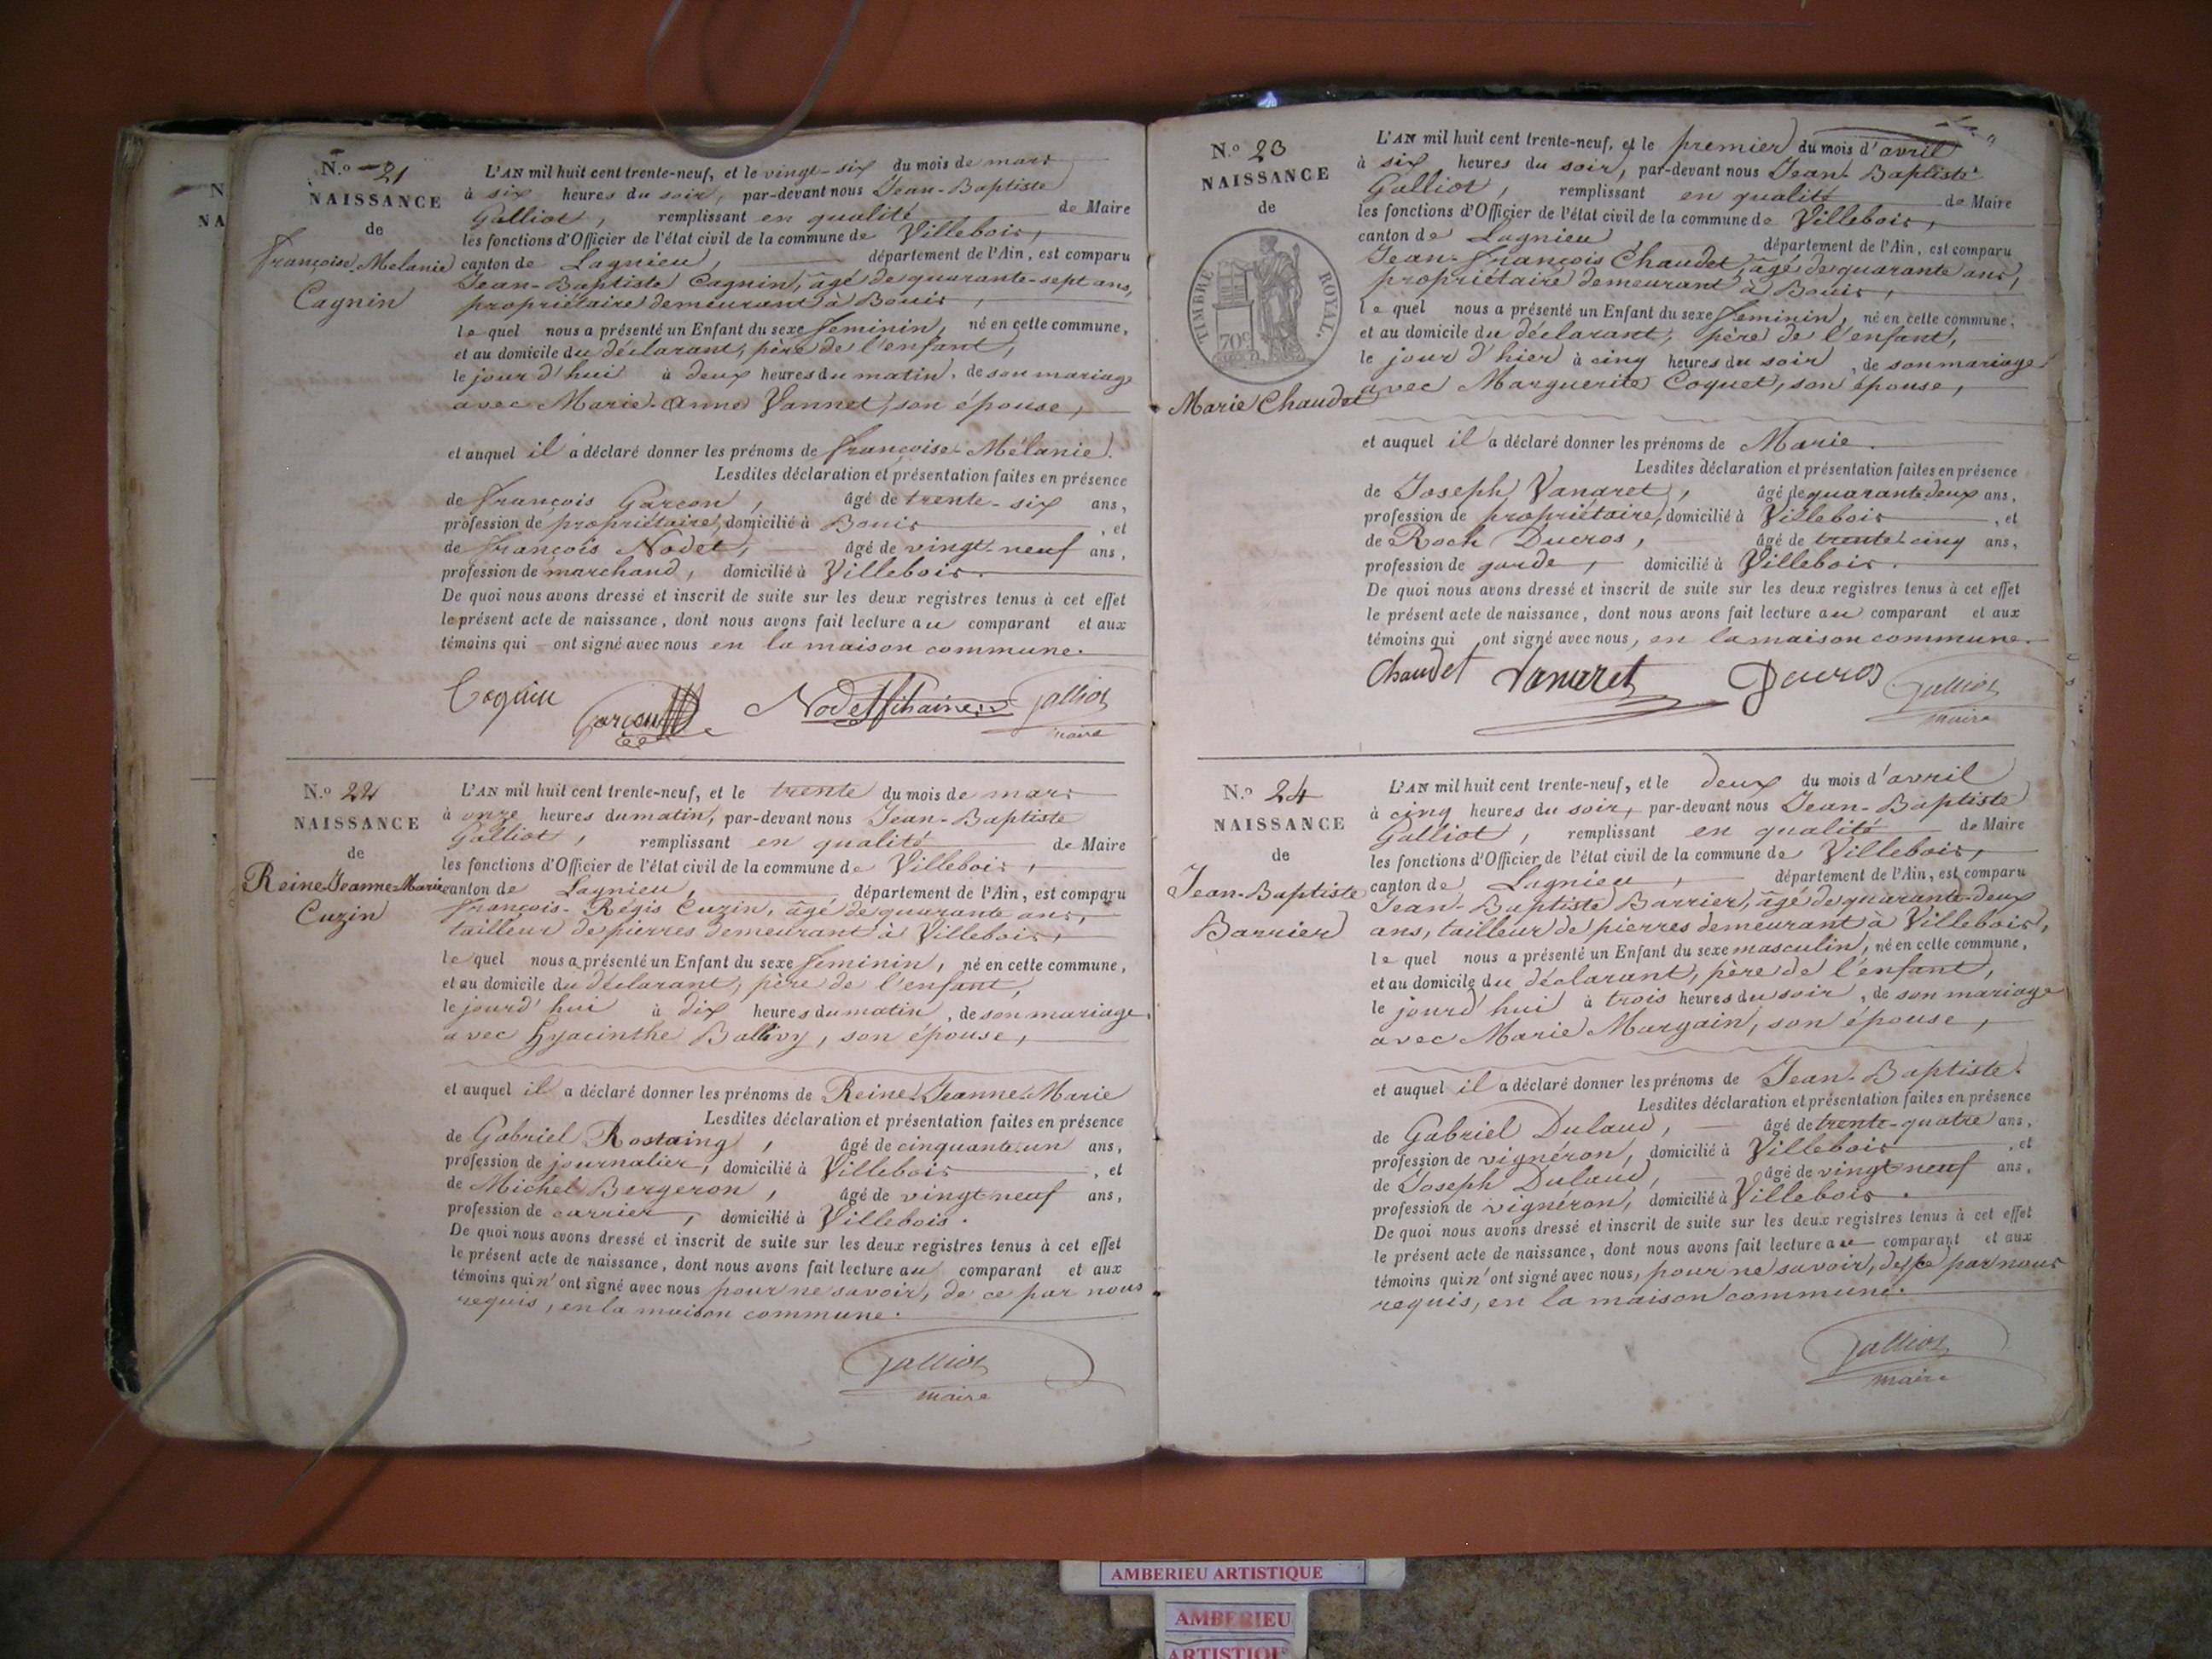 N.º 21
NAISSANCE
de
Françoise-Melanie
Cagnin
L'AN mil huit cent trente-neuf, et le vingt-six du mois de mars
à six heures du soir, par-devant nous Jean-Baptiste
Galliot, remplissant en qualité de Maire
les fonctions d'Officier de l'état civil de la commune de Villebois,
canton de Lagnieu, département de l'Ain, est comparu
Jean-Baptiste Cagnin, âgé de quarante-sept ans,
propriétaire demeurant à Bouis,
le quel nous a présenté un Enfant du sexe feminin, né en cette commune,
et au domicile du déclarant, père de l'enfant,
le jour d'hui à deux heures du matin, de son mariage
avec Marie-Anne Vannet, son épouse,
et auquel il a déclaré donner les prénoms de Françoise-Mélanie.
Lesdites déclaration et présentation faites en présence
de François Garçon, âgé de trente-six ans,
profession de propriétaire, domicilié à Bouis, et
de François Nodet, âgé de vingt-neuf ans,
profession de marchand, domicilié à Villebois.
De quoi nous avons dressé et inscrit de suite sur les deux registres tenus à cet effet
le présent acte de naissance, dont nous avons fait lecture au comparant et aux
témoins qui ont signé avec nous en la maison commune.
Cognin Garçon Nodet Galliot
maire
N.º 22
NAISSANCE
de
Reine-Jeanne-Marie
Cuzin
L'AN mil huit cent trente-neuf, et le trente du mois de mars
à onze heures du matin, par-devant nous Jean-Baptiste
Galliot, remplissant en qualité de Maire
les fonctions d'Officier de l'état civil de la commune de Villebois,
canton de Lagnieu, département de l'Ain, est comparu
François-Régis Cuzin, âgé de quarante ans,
tailleur de pierres demeurant à Villebois,
le quel nous a présenté un Enfant du sexe feminin, né en cette commune,
et au domicile du déclarant, père de l'enfant,
le jourd'hui à dix heures du matin, de son mariage
avec Hyacinthe Ballivy, son épouse,
et auquel il a déclaré donner les prénoms de Reine-Jeanne-Marie
Lesdites déclaration et présentation faites en présence
de Gabriel Rostaing, âgé de cinquante-un ans,
profession de journalier, domicilié à Villebois, et
de Michel Bergeron, âgé de vingt-neuf ans,
profession de carrier, domicilié à Villebois.
De quoi nous avons dressé et inscrit de suite sur les deux registres tenus à cet effet
le présent acte de naissance, dont nous avons fait lecture au comparant et aux
témoins qui n'ont signé avec nous pour ne savoir, de ce par nous
requis, en la maison commune.
Galliot
maire
N.º 23
NAISSANCE
de
TIMBRE ROYAL.
70c
Marie Chaudet
L'AN mil huit cent trente-neuf, et le premier du mois d'avril
à six heures du soir, par-devant nous Jean-Baptiste
Galliot, remplissant en qualité de Maire
les fonctions d'Officier de l'état civil de la commune de Villebois,
canton de Lagnieu, département de l'Ain, est comparu
Jean-François Chaudet, âgé de quarante ans,
propriétaire demeurant à Bouis,
le quel nous a présenté un Enfant du sexe feminin, né en cette commune,
et au domicile du déclarant, père de l'enfant,
le jour d'hier à cinq heures du soir, de son mariage
avec Marguerite Coquet, son épouse,
et auquel il a déclaré donner les prénoms de Marie.
Lesdites déclaration et présentation faites en présence
de Joseph Vanaret, âgé de quarante deux ans,
profession de propriétaire, domicilié à Villebois, et
de Roch Ducros, âgé de trente-cinq ans,
profession de garde, domicilié à Villebois.
De quoi nous avons dressé et inscrit de suite sur les deux registres tenus à cet effet
le présent acte de naissance, dont nous avons fait lecture au comparant et aux
témoins qui ont signé avec nous, en la maison commune.
Chaudet Vanaret Ducros Galliot
maire
N.º 24
NAISSANCE
de
Jean-Baptiste
Barrier
L'AN mil huit cent trente-neuf, et le deux du mois d'avril
à cinq heures du soir, par-devant nous Jean-Baptiste
Galliot, remplissant en qualité de Maire
les fonctions d'Officier de l'état civil de la commune de Villebois,
canton de Lagnieu, département de l'Ain, est comparu
Jean-Baptiste Barrier, âgé de quarante-deux
ans, tailleur de pierres demeurant à Villebois,
le quel nous a présenté un Enfant du sexe masculin, né en cette commune,
et au domicile du déclarant, père de l'enfant,
le jourd'hui à trois heures du soir, de son mariage
avec Marie Murgain, son épouse,
et auquel il a déclaré donner les prénoms de Jean-Baptiste.
Lesdites déclaration et présentation faites en présence
de Gabriel Dulaud, âgé de trente-quatre ans,
profession de vignéron, domicilié à Villebois, et
de Joseph Dulaud, âgé de vingt-neuf ans,
profession de vignéron, domicilié à Villebois.
De quoi nous avons dressé et inscrit de suite sur les deux registres tenus à cet effet
le présent acte de naissance, dont nous avons fait lecture au comparant et aux
témoins qui n'ont signé avec nous, pour ne savoir, de ce par nous
requis, en la maison commune.
Galliot
maire
AMBERIEU ARTISTIQUE
AMBERIEU
ARTISTIQUE